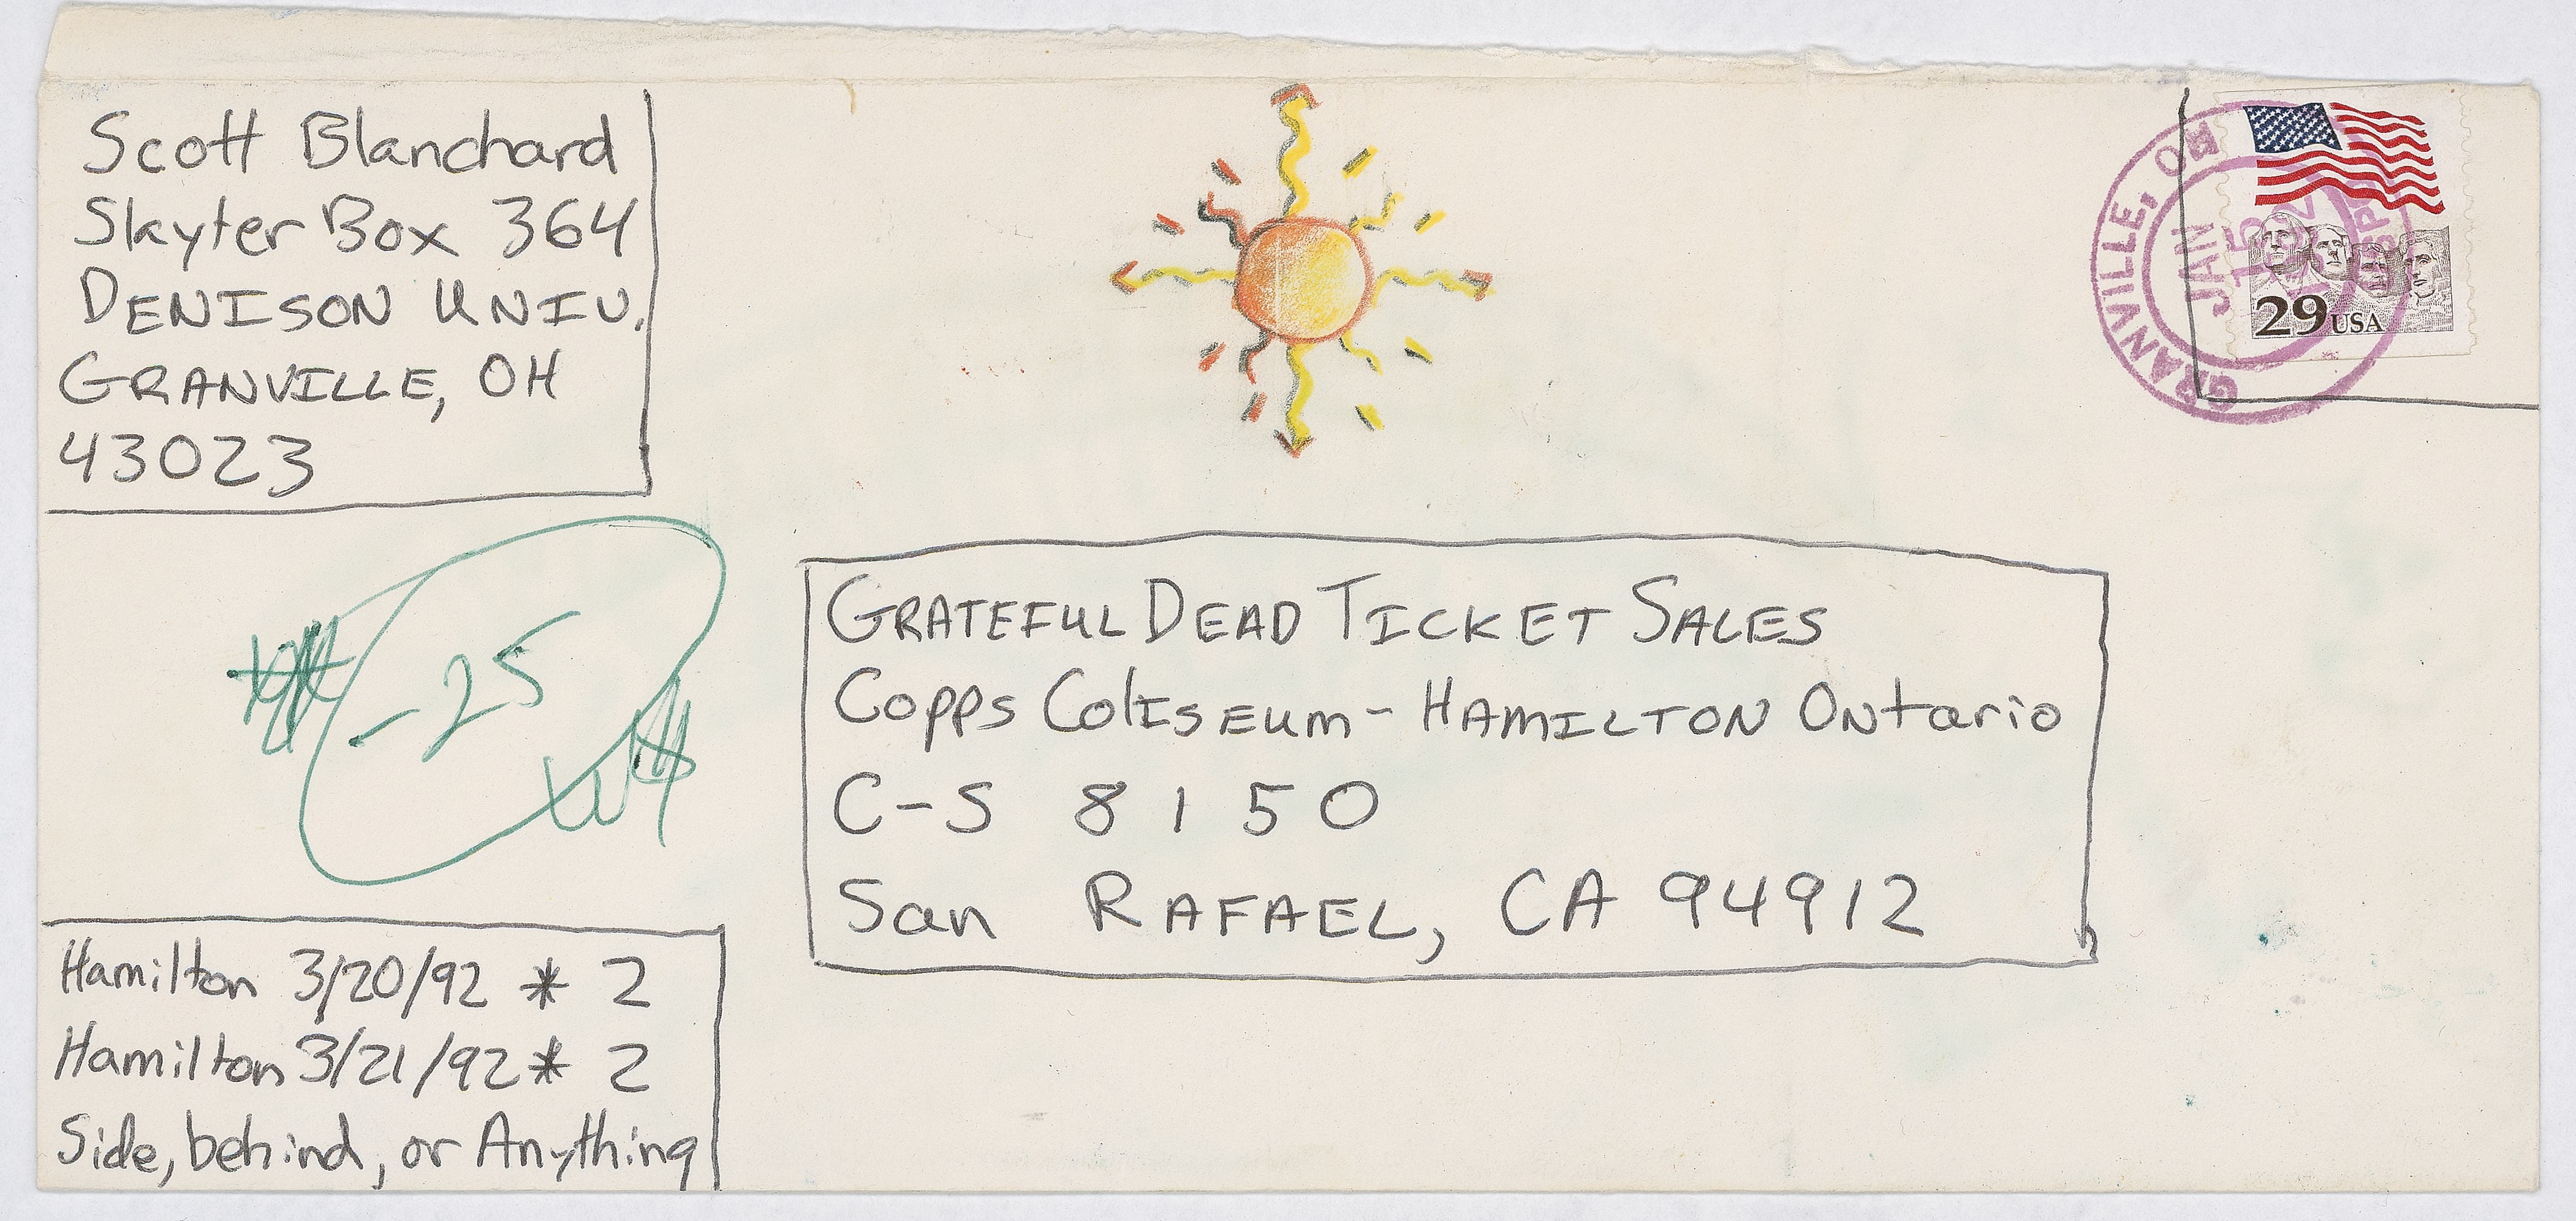 Scott Blanchard
Slayter Box 364
DENISON UNIV.
GRANVILLE, OH
43023
GRANVILLE, OH
JAN
15
1992
USPO
29 USA
-25
GRATEFUL DEAD TICKET SALES
Copps ColISEUm - HAMILTON ONtario
C-S 8150
San RAFAEL, CA 94912
Hamilton 3/20/92 * 2
Hamilton 3/21/92 * 2
Side, behind, or Anything